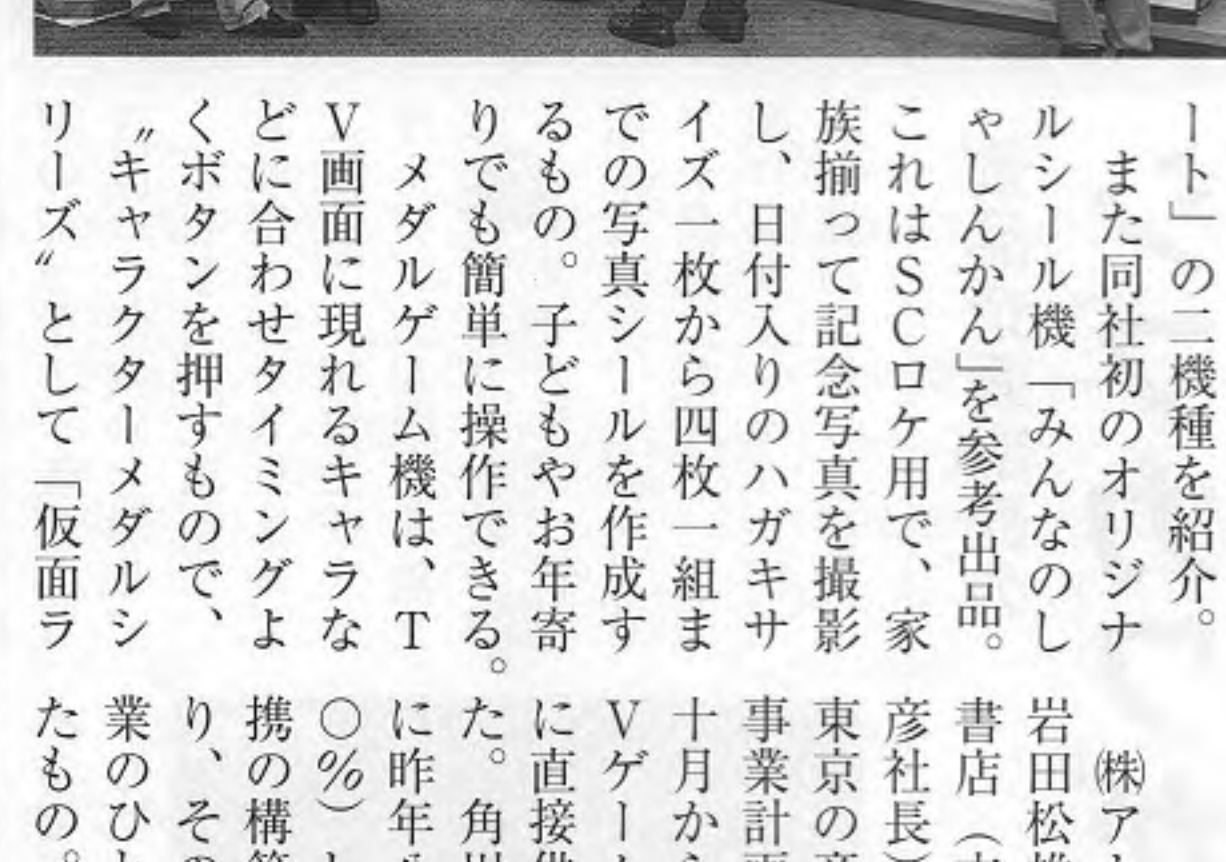 ート」の二機種を紹介。
また同社初のオリジナ
ルシール機「みんなのし
ゃしんかん」を参考出品。
これはSCロケ用で、家
族揃って記念写真を撮影
し、日付入りのハガキサ
イズ一枚から四枚一組ま
での写真シールを作成す
るもの。子どもやお年寄
りでも簡単に操作できる。
メダルゲーム機は、T
V画面に現れるキャラな
どに合わせタイミングよ
くボタンを押すもので、
〝キャラクターメダルシ
リーズ〟として「仮面ラ
㈱ア
岩田松
書店(
彦社長
東京の
事業計
十月か
Vゲー
に直接
た。角
に昨年
〇%)
携の構
り、その
業のひ
たもの。